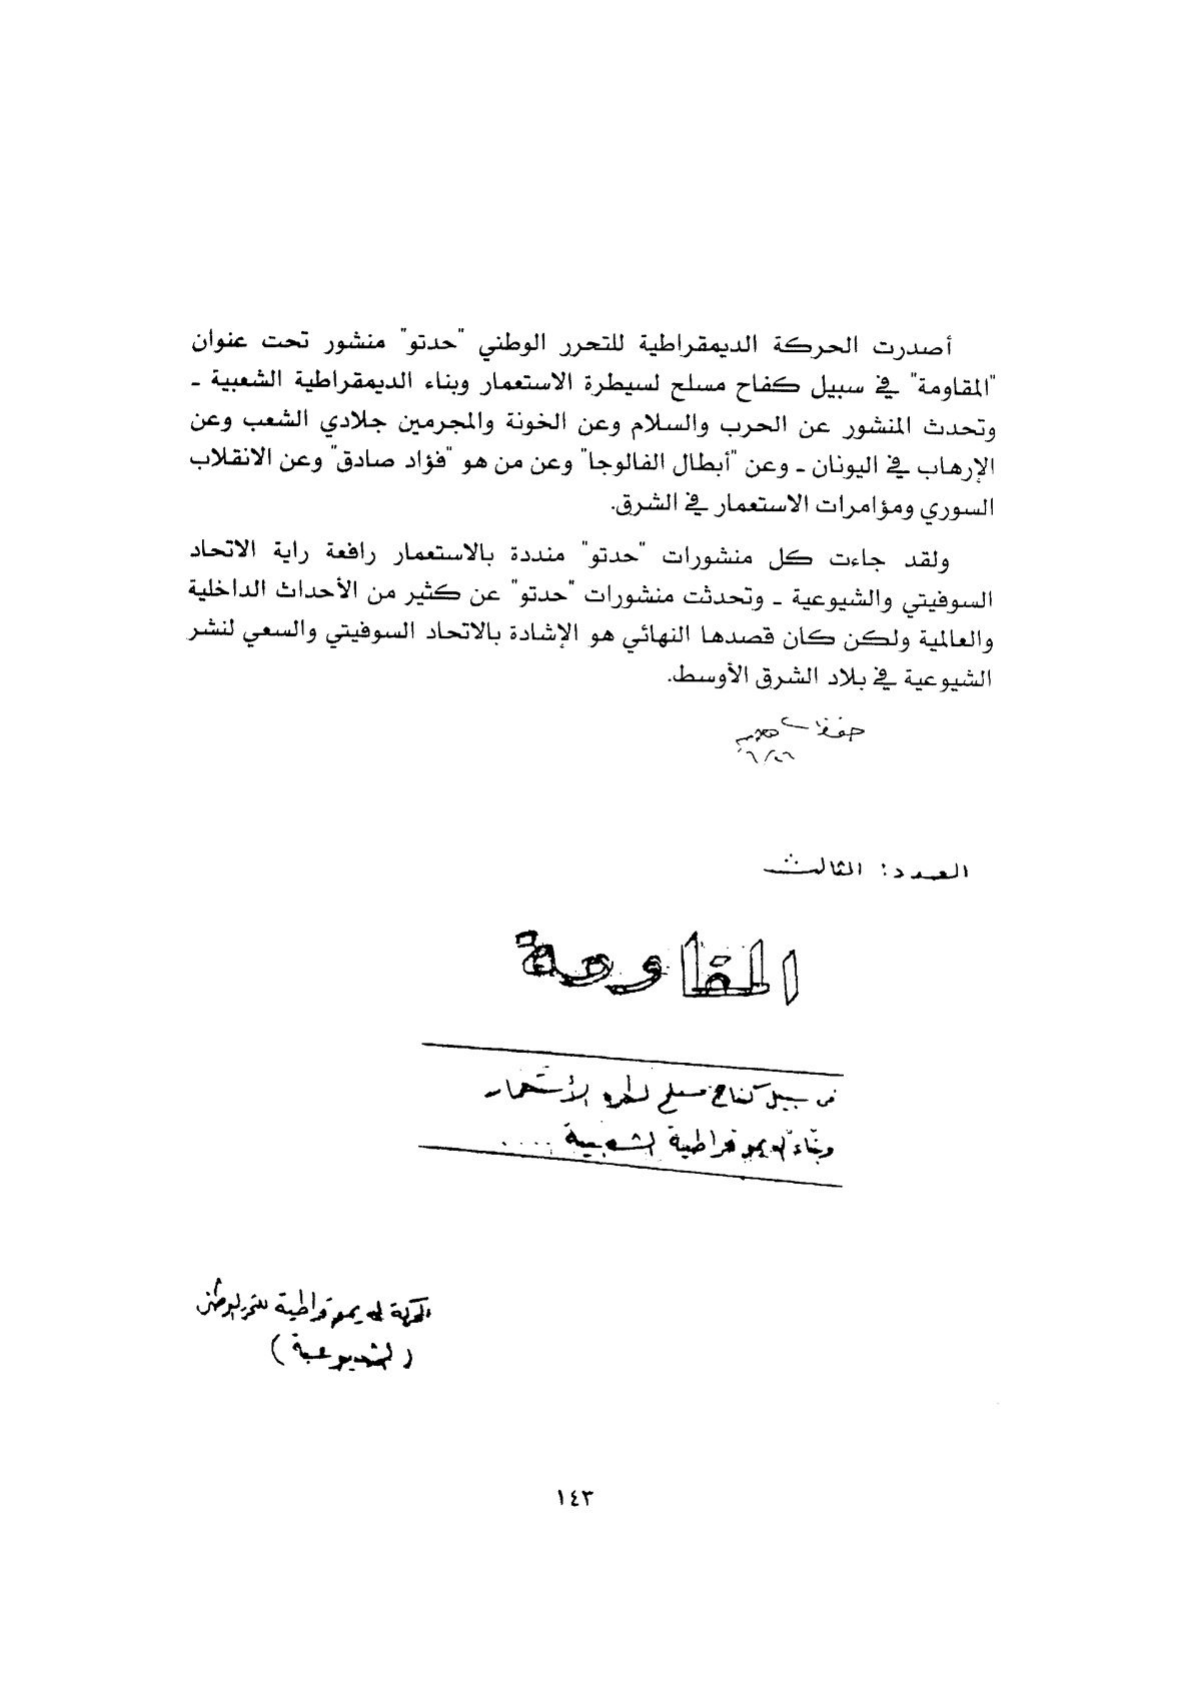 أصدرت الحركة الديمقراطية للتحرر الوطني "حدتو" منشور تحت عنوان
"المقاومة" في سبيل كفاح مسلح لسيطرة الاستعمار وبناء الديمقراطية الشعبية ـ
وتحدث المنشور عن الحرب والسلام وعن الخونة والمجرمين جلادي الشعب وعن
الإرهاب في اليونان ـ وعن "أبطال الفالوجا" وعن من هو "فؤاد صادق" وعن الانقلاب
السوري ومؤامرات الاستعمار في الشرق.
ولقد جاءت كل منشورات "حدتو" منددة بالاستعمار رافعة راية الاتحاد
السوفيتي والشيوعية ـ وتحدثت منشورات "حدتو" عن كثير من الأحداث الداخلية
والعالمية ولكن كان قصدها النهائي هو الإشادة بالاتحاد السوفيتي والسعي لنشر
الشيوعية في بلاد الشرق الأوسط.
العدد: الثالث
المقاومة
في سبيل كفاح مسلح الأستعمار
وبناء الديموقراطية الشعبية ....
الحركة الديموقراطية للتحرر الوطنى
(الشيوعية)
١٤٣